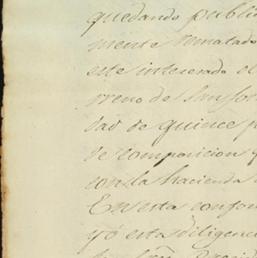 quedando publi
mente rematado
este interesado el
rreno de
dad de quince p
de composicion y
con la hacienda
En esta confor
yó esta diligenc